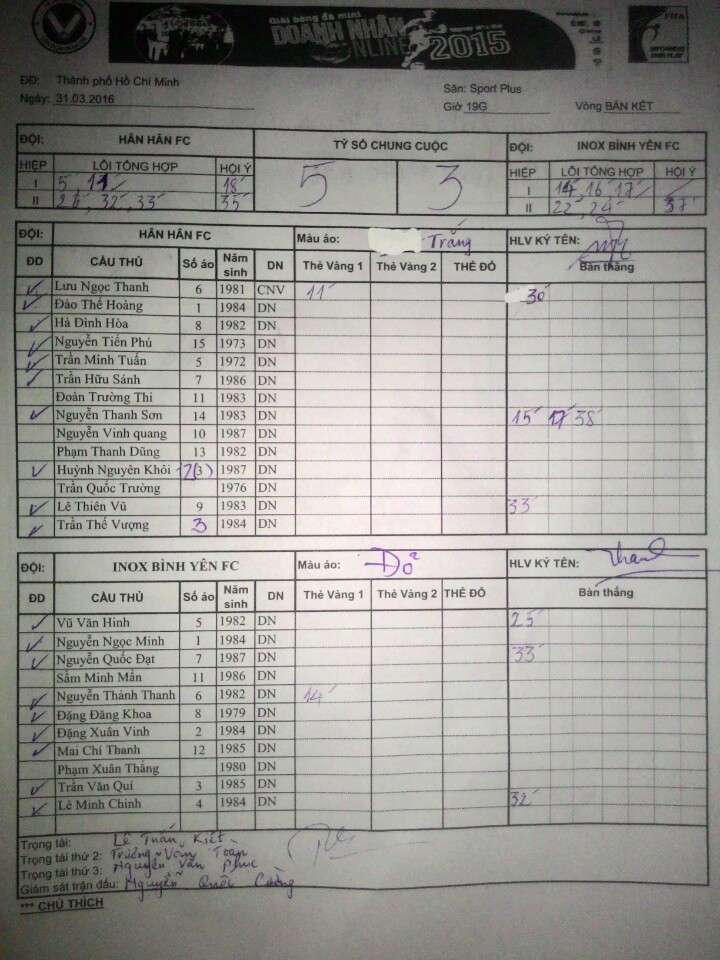 Giải bóng đá mini
DOANH NHÂN
ONLINE 2015
FIFA
ĐĐ: Thành phố Hồ Chí Minh
Sân: Sport Plus
Ngày: 31.03.2016
Giờ 19G Vòng BÁN KẾT
ĐỘI: HÂN HÂN FC TỶ SỐ CHUNG CUỘC ĐỘI: INOX BÌNH YÊN FC
HIỆP LỖI TỔNG HỢP HỘI Ý 5 3 HIỆP LỖI TỔNG HỢP HỘI Ý
I 5, 11 18 I 14, 16 17
II 26, 32, 33 35 II 22, 24 37
ĐỘI: HÂN HÂN FC Màu áo: Trắng HLV KÝ TÊN:
ĐD CẦU THỦ Số áo Năm sinh DN Thẻ Vàng 1 Thẻ Vàng 2 THẺ ĐỎ Bàn thắng
Lưu Ngọc Thanh 6 1981 CNV 11 30
Đào Thế Hoàng 1 1984 DN
Hà Đình Hòa 8 1982 DN
Nguyễn Tiến Phú 15 1973 DN
Trần Minh Tuấn 5 1972 DN
Trần Hữu Sánh 7 1986 DN
Đoàn Trường Thi 11 1983 DN
Nguyễn Thanh Sơn 14 1983 DN 15 17 38
Nguyễn Vinh quang 10 1987 DN
Phạm Thanh Dũng 13 1982 DN
Huỳnh Nguyên Khôi 12(3) 1987 DN
Trần Quốc Trường 1976 DN
Lê Thiên Vũ 9 1983 DN 33
Trần Thế Vượng 3 1984 DN
ĐỘI: INOX BÌNH YÊN FC Màu áo: Đỏ HLV KÝ TÊN: Thanh
ĐD CẦU THỦ Số áo Năm sinh DN Thẻ Vàng 1 Thẻ Vàng 2 THẺ ĐỎ Bàn thắng
Vũ Văn Hinh 5 1982 DN 25
Nguyễn Ngọc Minh 1 1984 DN
Nguyễn Quốc Đạt 7 1987 DN 33
Sầm Minh Mẫn 11 1986 DN
Nguyễn Thành Thanh 6 1982 DN 14
Đặng Đăng Khoa 8 1979 DN
Đặng Xuân Vinh 2 1984 DN
Mai Chí Thanh 12 1985 DN
Phạm Xuân Thắng 1980 DN
Trần Văn Quí 3 1985 DN
Lê Minh Chinh 4 1984 DN 32
Trọng tài: Lê Tuấn Kiết
Trọng tài thứ 2: Trương Văn Toàn
Trọng tài thứ 3: Nguyễn Văn Phúc
Giám sát trận đấu: Nguyễn Quốc Cường
*** CHÚ THÍCH